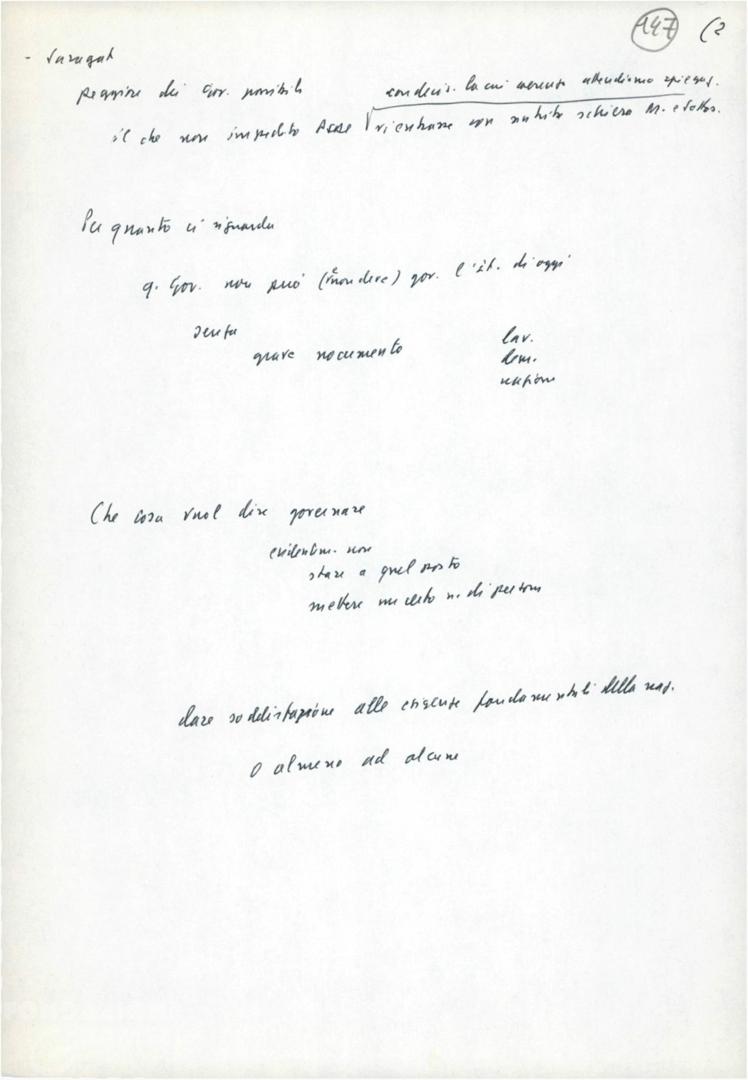 147 (2
- Saragat
peggiore dei Gov. possibili
con decis. la cui urgenza attendiamo spiegaz.
il che non impedito PSDI rientrare con nutrita schiera M. e Sottos.
Per quanto ci riguarda
q. Gov. non può (e non deve) gov. l'it. di oggi
senza
grave nocumento
lav.
dem.
nazione
Che cosa vuol dire governare
evidentem. non
stare a quel posto
mettere un certo n. di persone
dare soddisfazione alle esigenze fondamentali della naz.
o almeno ad alcune